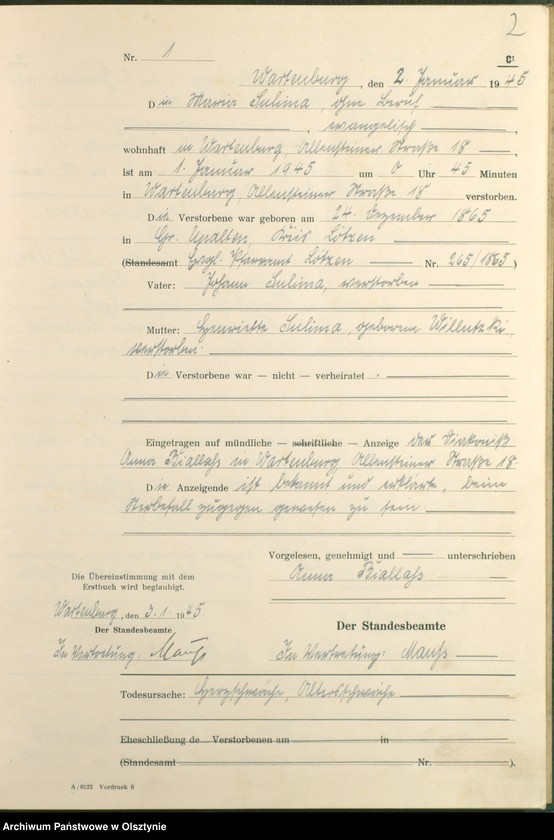 2
Nr. 1
C1
Wartenburg, den 2. Januar 1945
Die Maria Sulima, ohne Beruf
, evangelisch
wohnhaft in Wartenburg, Allensteiner Straße 18
ist am 1. Januar 1945 um 0 Uhr 45 Minuten
in Wartenburg, Allensteiner Straße 18 verstorben.
Die Verstorbene war geboren am 24. Dezember 1865
in Gr. Upalten, Kreis Lötzen
(Standesamt Evgl. Pfarramt Lötzen Nr. 265/1865)
Vater: Johann Sulima, verstorben
Mutter: Henriette Sulima, geborene Willutzki,
verstorben.
Die Verstorbene war — nicht — verheiratet.
Eingetragen auf mündliche — schriftliche — Anzeige der Diakoniss
Anna Biallass in Wartenburg, Allensteiner Straße 18.
Die Anzeigende ist bekannt und erklärte, beim
Sterbefall zugegen gewesen zu sein
Vorgelesen, genehmigt und unterschrieben
Anna Biallass
Die Übereinstimmung mit dem
Erstbuch wird beglaubigt.
Wartenburg, den 3.1.1945.
Der Standesbeamte
In Vertretung:
Der Standesbeamte
In Vertretung:
Todesursache: Herzschwäche, Altersschwäche
Eheschließung de Verstorbenen am in
(Standesamt Nr. ).
A/0123 Vordruck 6
Archiwum Państwowe w Olsztynie